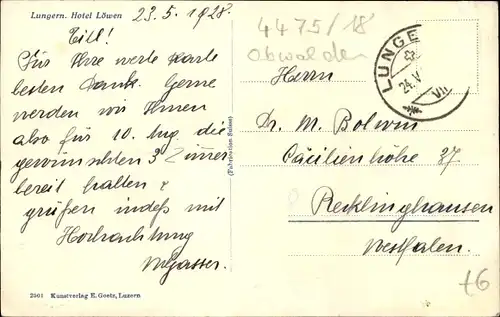 Lungern. Hotel Löwen
23.5.1928.
Titl!
Für Ihre werte Karte
besten Dank. Gerne
werden wir Ihnen
also für 10. Aug die
gewünschten 3 Zimmer
bereit halten &
grüßen indeß mit
Hochachtung
Gasser.
2501 Kunstverlag E. Goetz, Luzern
(Fabrication Suisse)
4475/18
Obwalden
LUNGE
24.V
VII
Herrn
Dr. M. Bolwin
Cäcilienhöhe 27
Recklinghausen
Westfalen.
+6